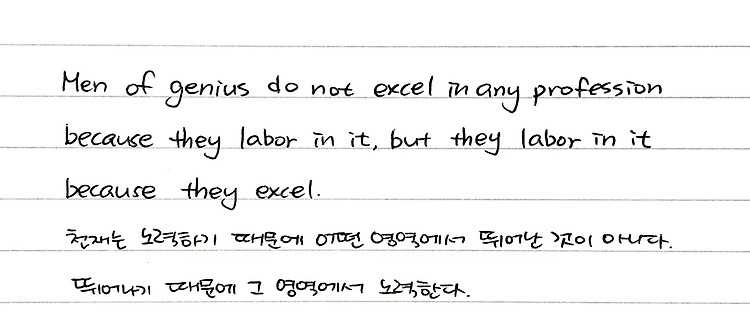 Men of genius do not excel in any profession
because they labor in it, but they labor in it
because they excel.
천재는 노력하기 때문에 어떤 영역에서 뛰어난 것이 아니다.
뛰어나기 때문에 그 영역에서 노력한다.